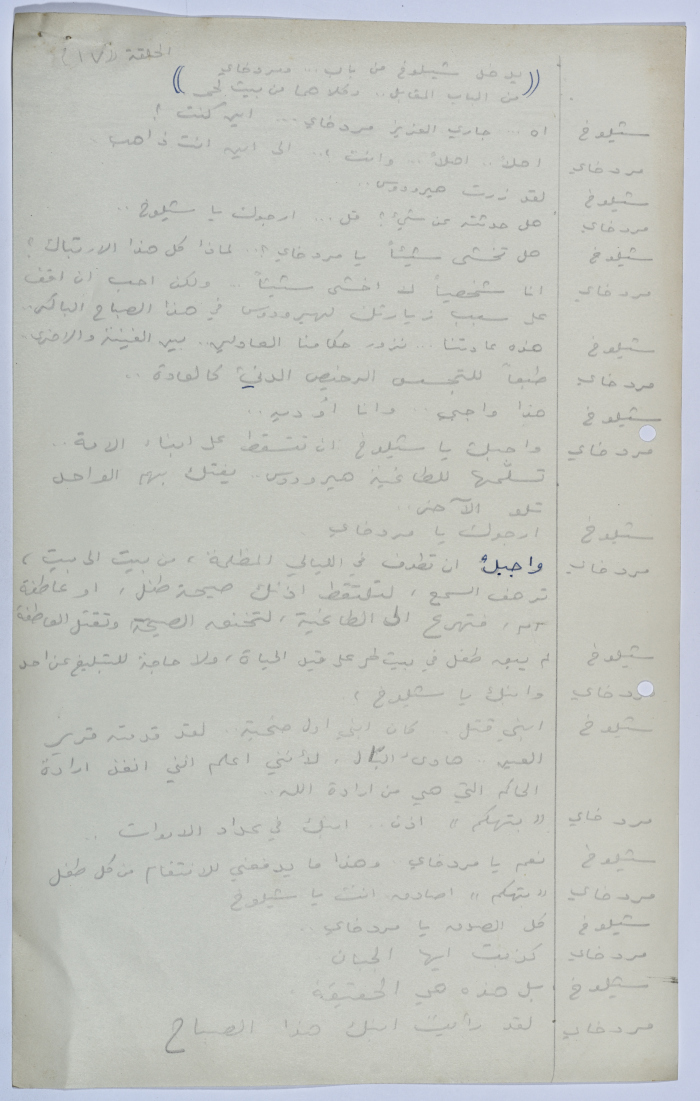 الحلقة (١٧)
((يدخل شيلوخ من باب... ومردخاي
من الباب المقابل.. وكلاهما من بيت لحم))
شيلوخ اه... جاري العزيز مردخاي... اين كنت؟
مردخاي اهلاً.. اهلاً... وانت؟.. الى اين انت ذاهب
شيلوخ لقد زرت هيرودوس..
مردخاي هل حدثته عن شيء؟ قل... ارجوك يا شيلوخ..
شيلوخ هل تخشى شيئاً يا مردخاي؟.. لماذا كل هذا الارتباك؟
مردخاي انا شخصياً لا اخشى شيئاً.. ولكن احب ان اقف
على سبب زيارتك لهيرودوس في هذا الصباح الباكر..
شيلوخ هذه عادتنا... نزور حكامنا العادلين.. بين الفينة والاخرى..
مردخاي طبعاً للتجسس الرخيص الدنيء كالعادة..
شيلوخ هذا واجبي.. وانا أؤديه..
مردخاي واجبك يا شيلوخ ان تتسقط على ابناء الامة..
تسلّمها للطاغية هيرودوس.. يفتك بهم الواحد
تلو الآخر..
شيلوخ ارجوك يا مردخاي
مردخاي واجبك ان تطوف في الليالي المظلمة، من بيت الى بيت،
ترهف السمع، لتلتقط اذنك صيحة طفل، او عاطفة
ام، فتهرع الى الطاغية، لتخنق الصيحة وتقتل العاطفة
شيلوخ لم يبق طفل في بيت لحم على قيد الحياة، ولا حاجة للتبليغ عن احد
مردخاي وابنك يا شيلوخ؟
شيلوخ ابني قتل. كان ابني اول ضحية.. لقد قدمته قرير
العين.. هادىء البال، لأنني اعلم انني انفذ ارادة
الحاكم التي هي من ارادة الله..
مردخاي "بتهكم" اذن.. ابنك في عداد الاموات..
شيلوخ نعم يا مردخاي. وهذا ما يدفعني للانتقام من كل طفل
مردخاي "بتهكم" اصادق انت يا شيلوخ
شيلوخ كل الصدق يا مردخاي..
مردخاي كذبت ايها الجبان
شيلوخ بل هذه هي الحقيقة.
مردخاي لقد رأيت ابنك هذا الصباح